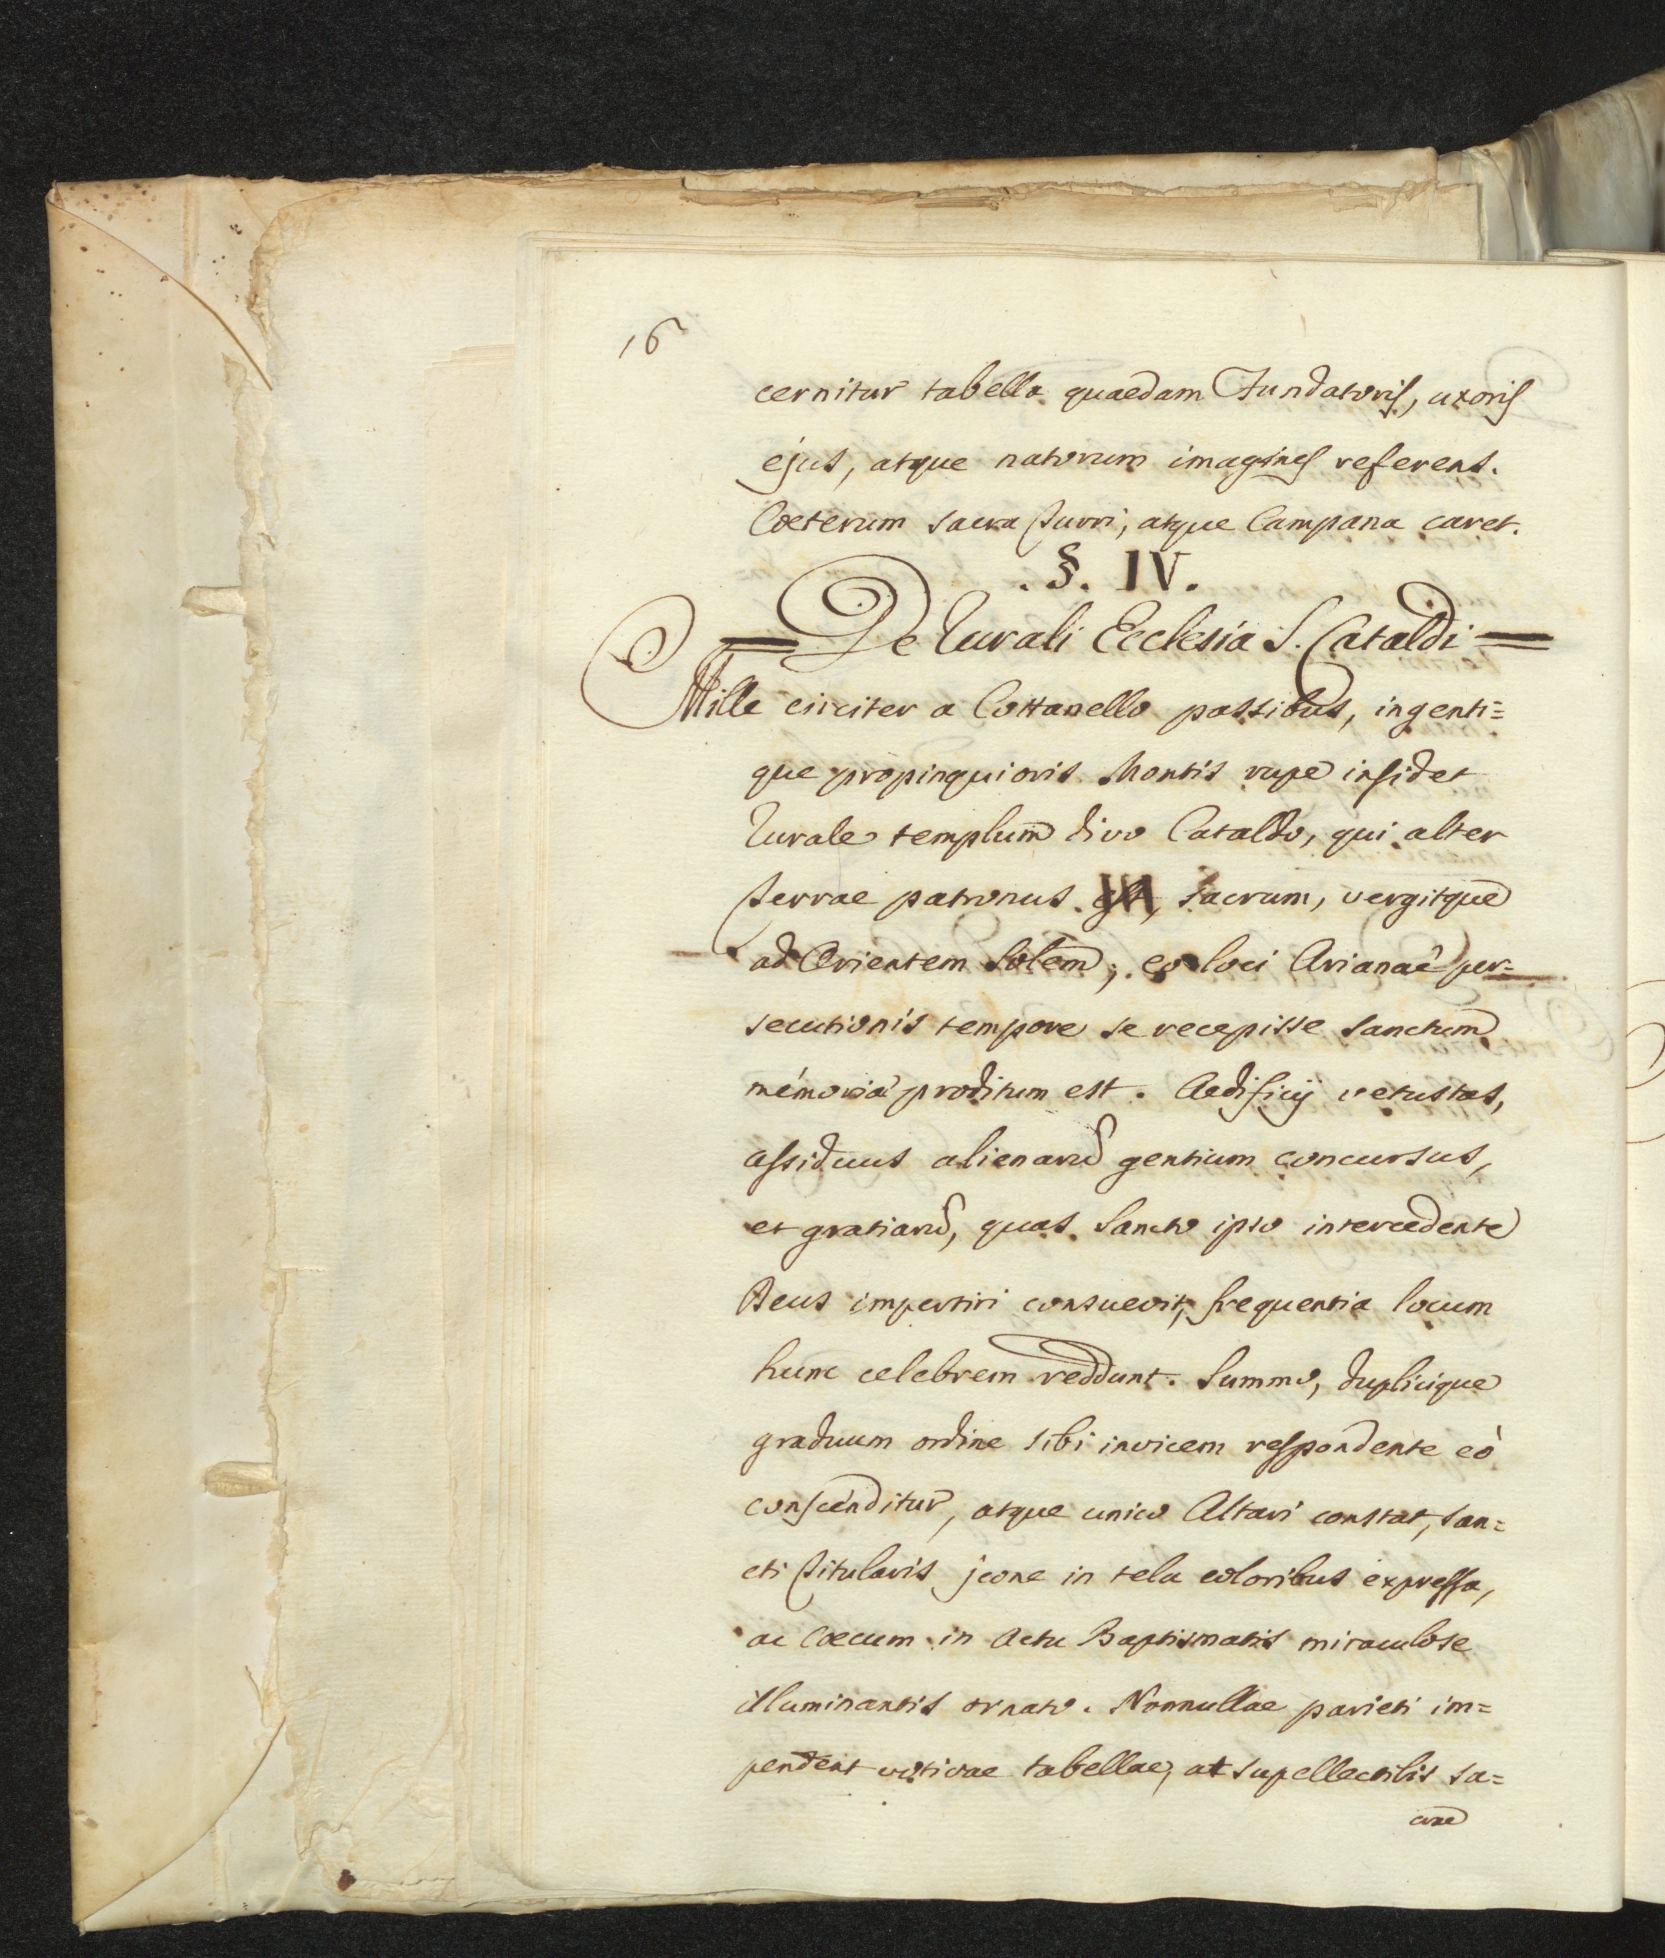 16
cernitur tabella quaedam Fundatoris, uxoris
ejus, atque natorum imagines referens.
Coeterum sacra Turri, atque Campana caret.
. §. IV.
= De Rurali Ecclesia S. Cataldi =
Mille circiter a Cottanello passibus, ingenti=
que propinquioris Montis rupe insidet
Rurale templum divo Cataldo, qui alter
Terrae patronus sacrum, vergitque
ad Orientem Solem; eo loci Arianae per=
secutionis tempore se recepisse Sanctum
memoria proditum est. Aedificij vetustas,
assiduus alienarũ gentium concursus,
et gratiarũ, quas Sancto ipso intercedente
Deus impertiri consuevit, frequentia locum
hunc celebrem reddunt. Summo, duplicique
graduum ordine sibi invicem respondente eò
conscenditur, atque unico Altari constat, San=
cti Titularis jcone in tela coloribus expressa,
ac Coecum in actu Baptismatis miraculose
illuminantis ornato. Nonnullae parieti im=
pendent votivae tabellae, at supellectilis sa=
crae